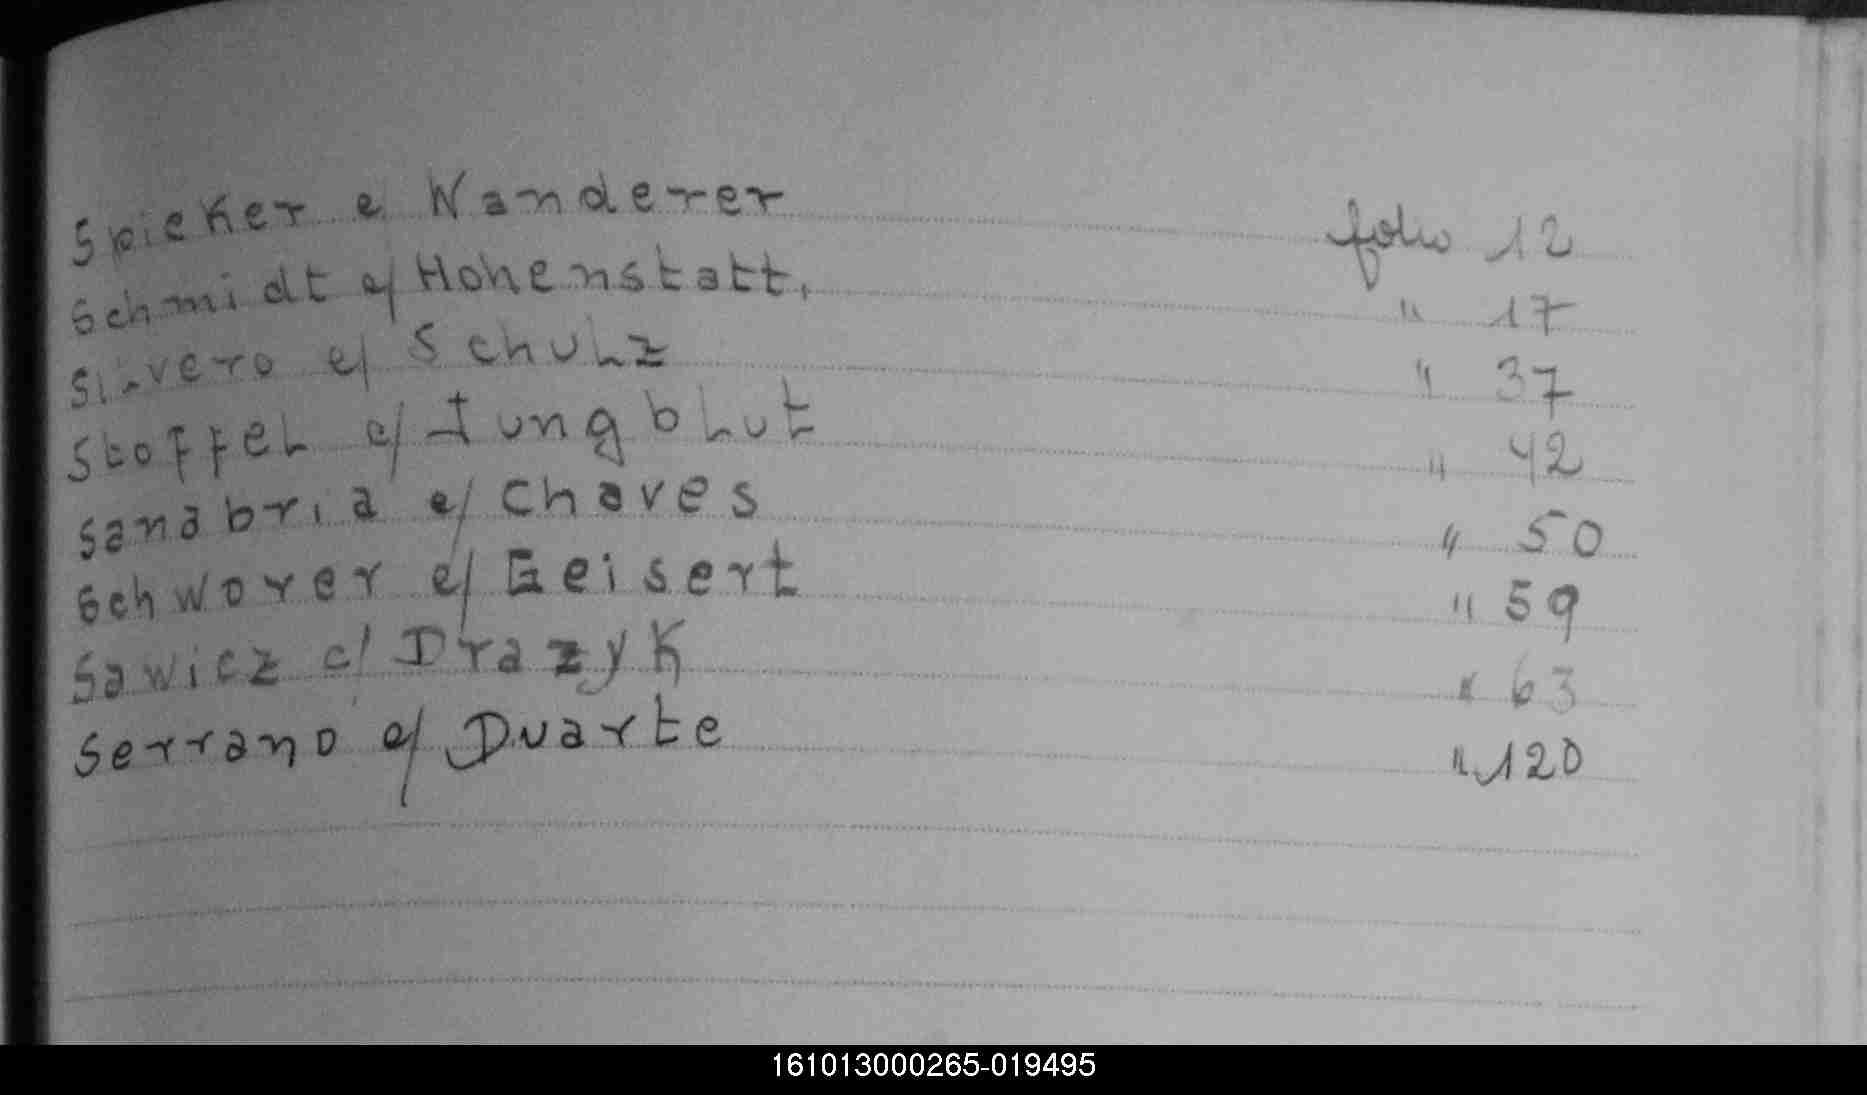 Spieker e Wanderer folio 12
Schmidt c/ Hohenstatt. " 17
Silvero c/ Schulz " 37
Stoffel c/ Jungblut " 42
Sanabria c/ Chaves " 50
Schworer c/ Geisert " 59
Sawicz c/ Drazyk " 63
Serrano c/ Duarte " 120
161013000265-019495